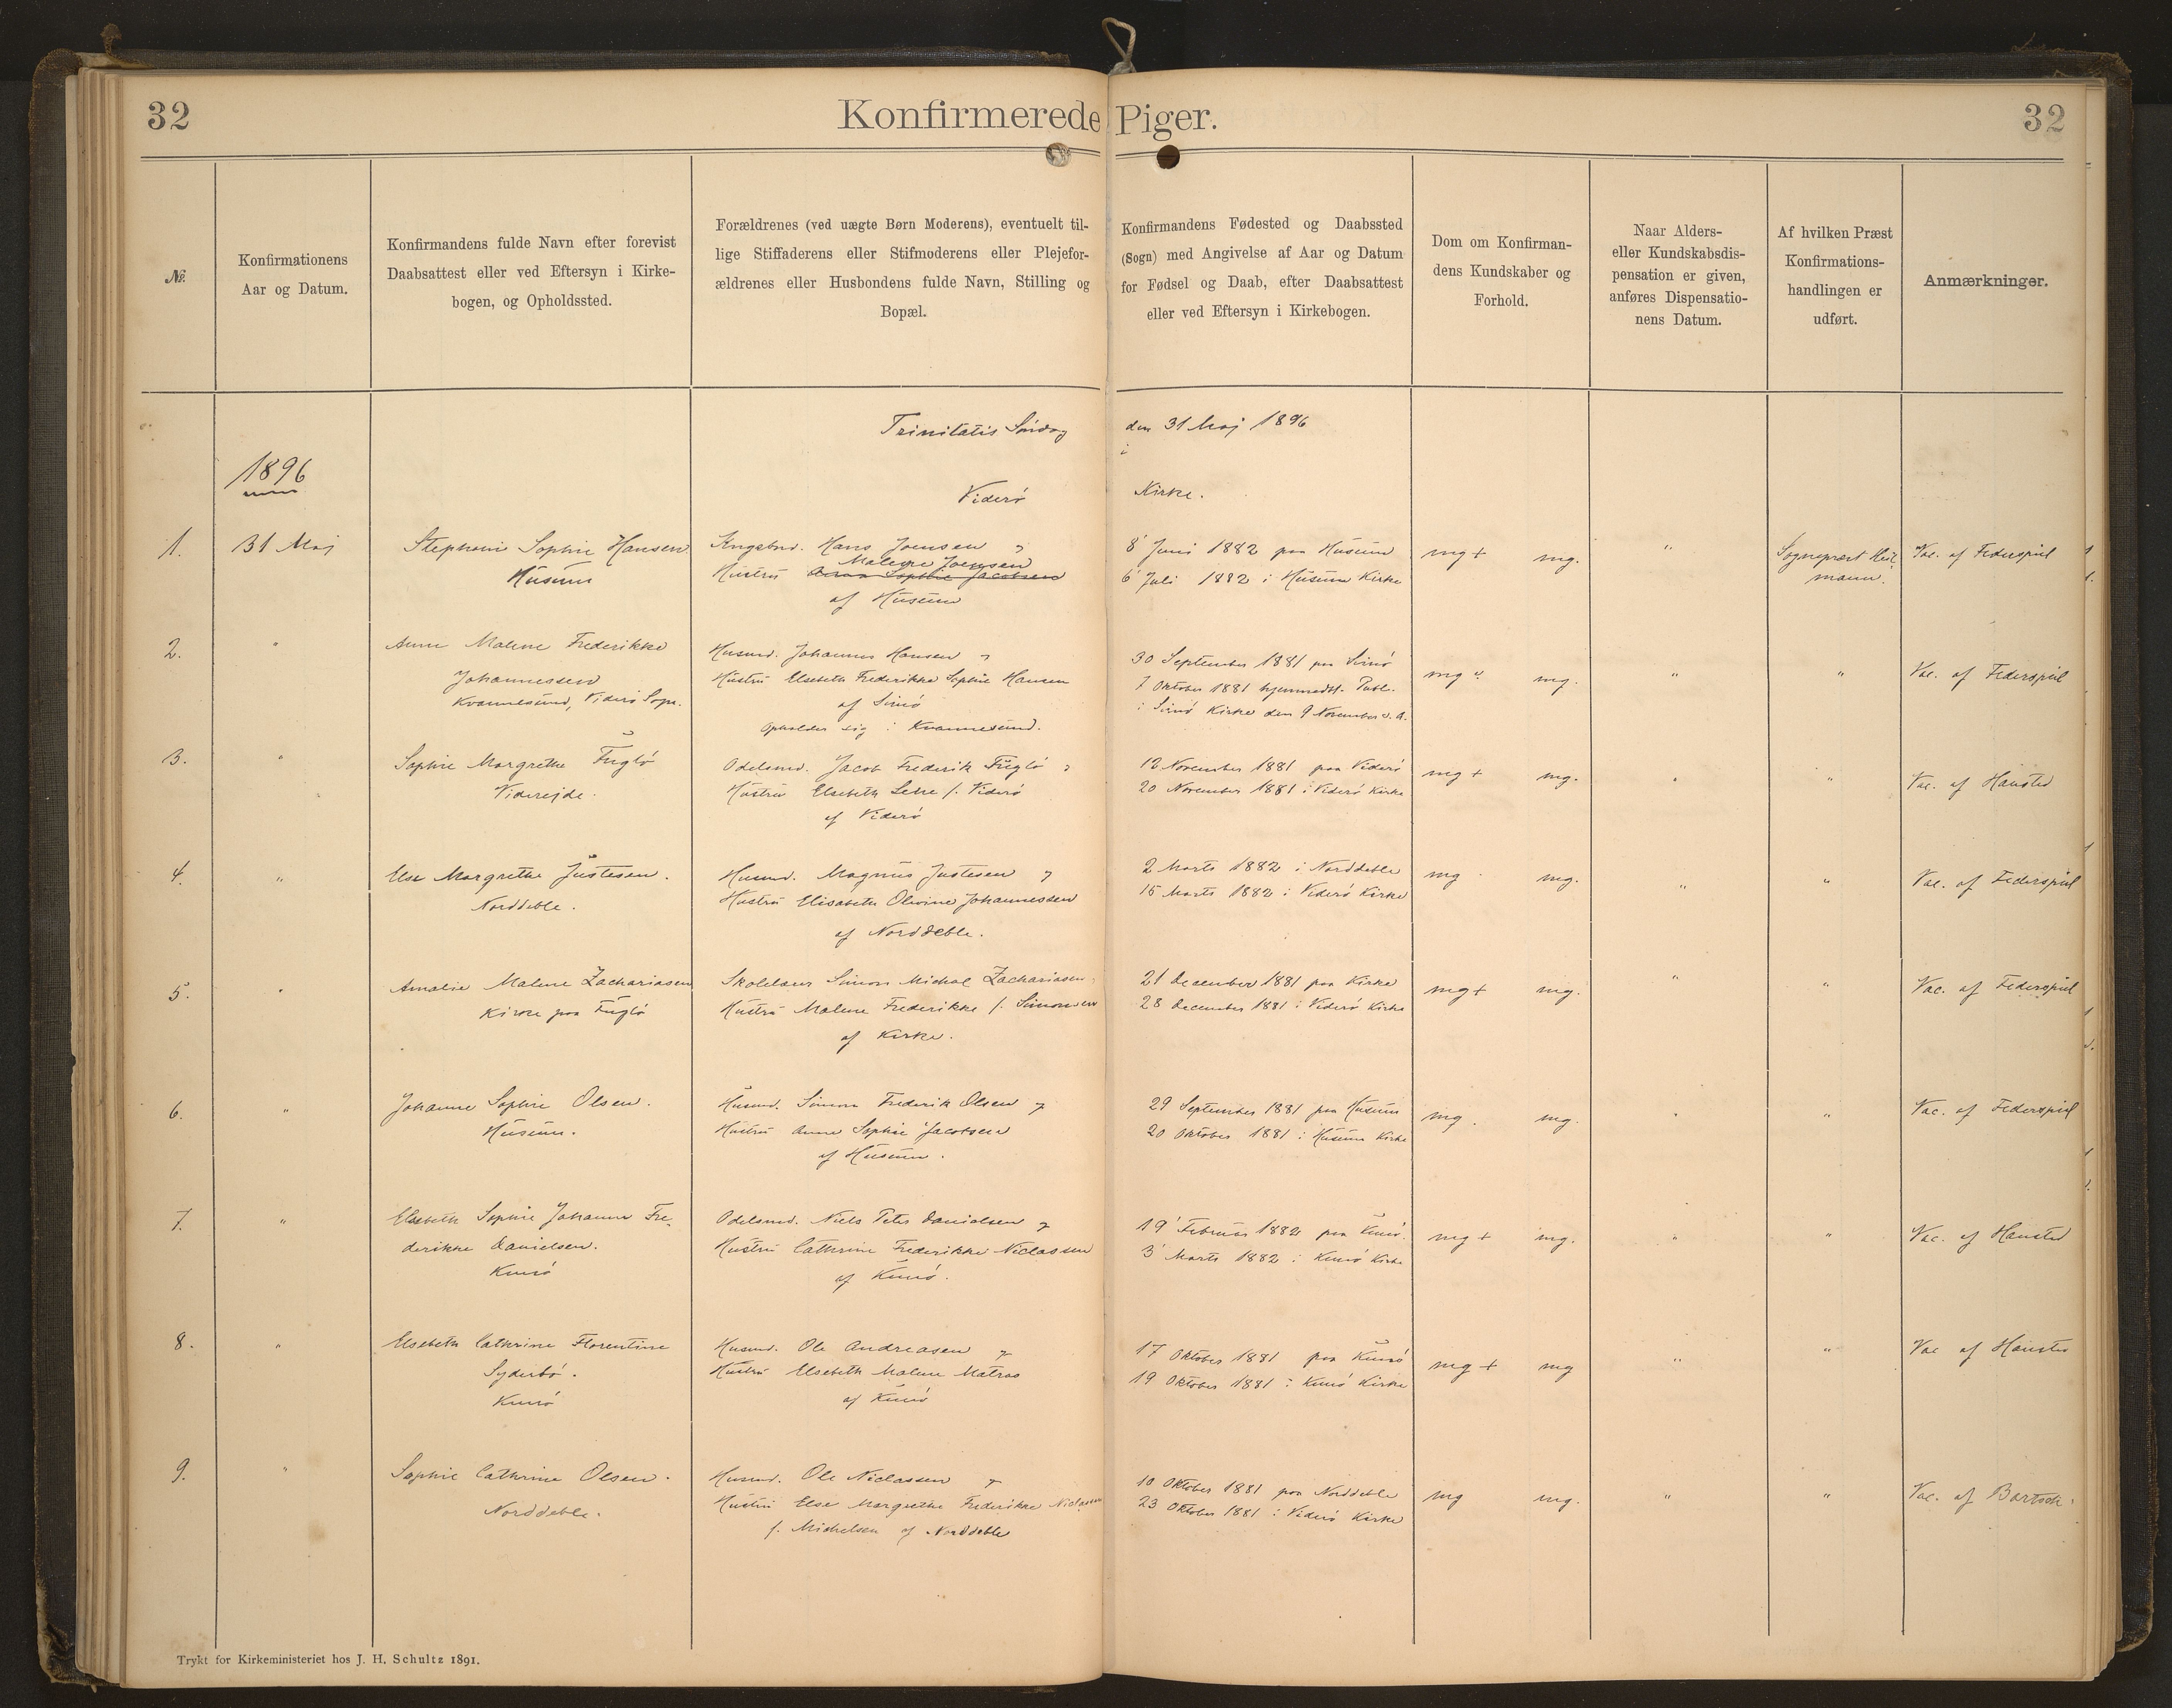 32
Konfirmerede Piger.
32
№
Konfirmationens
Aar og Datum.
Konfirmandens fulde Navn efter forevist
Daabsattest eller ved Eftersyn i Kirke-
bogen, og Opholdssted.
Forældrenes (ved uægte Børn Moderens), eventuelt til-
lige Stiffaderens eller Stifmoderens eller Plejefor-
ældrenes eller Husbondens fulde Navn, Stilling og
Bopæl.
Konfirmandens Fødested og Daabssted
(Sogn) med Angivelse af Aar og Datum
for Fødsel og Daab, efter Daabsattest
eller ved Eftersyn i Kirkebogen.
Dom om Konfirman-
dens Kundskaber og
Forhold.
Naar Alders-
eller Kundskabsdis-
pensation er given,
anføres Dispensatio-
nens Datum.
Af hvilken Præst
Konfirmations-
handlingen er
udført.
Anmærkninger.
Trinitatis Søndag den 31 Maj 1896
i
1896
Viderø Kirke.
1.
31 Maj
Stephanie Sophie Hansen
Husum
Kngsbnd. Hans Joensen og
Malene Joensen
Hustru Anna Sophie Jacobsen
af Husum
8 Juni 1882 paa Husum
6 Juli 1882 i Husum Kirke
mg + mg.
"
Sognepræst Heil-
mann.
Vac. af Federspiel
2.
"
Anne Malene Frederikke
Johannessen
Kvannesund, Viderø Sogn.
Husmd. Johannes Hansen og
Hustru Elsebeth Frederikke Sophie Hansen
af Svinø
opholder sig i Kvannesund.
30 September 1881 paa Svinø
7 Oktober 1881 hjemmedbt. Publ.
i Svinø Kirke den 9 November s. A.
mg " mg.
"
"
Vac. af Federspiel
3.
"
Sophie Margrethe Fuglø
Viderejde.
Odelsmd. Jacob Frederik Fuglø og
Hustru Elsebeth Lene f. Viderø
af Viderø
12 November 1881 paa Viderø
20 November 1881 i Viderø Kirke
mg + mg.
"
"
Vac. af Hansted
4.
"
Else Margrethe Justesen.
Norddeble.
Husmd. Magnus Justesen og
Hustru Elisabeth Olevine Johannessen
af Norddeble.
2 Marts 1882 i Norddeble
15 Marts 1882 i Viderø Kirke
mg mg.
"
"
Vac. af Federspiel
5.
"
Amalie Malene Zachariasen
Kirke paa Fuglø
Skolelærer Simon Michal Zachariasen
Hustru Malene Frederikke f. Simonsen
af Kirke.
21 December 1881 paa Kirke
28 December 1881 i Viderø Kirke
mg + mg.
"
"
Vac. af Federspiel
6.
"
Johanne Sophie Olsen.
Husum.
Husmd. Simon Frederik Olsen og
Hustru Anne Sophie Jacobsen
af Husum.
29 September 1881 paa Husum
20 Oktober 1881 i Husum Kirke
mg. mg.
"
"
Vac. af Federspiel
7.
"
Elsebeth Sophie Johanne Fre-
derikke Danielsen.
Kunø
Odelsmd. Niels Peter Danielsen og
Hustru Cathrine Frederikke Niclassen
af Kunø.
19 Februar 1882 paa Kunø.
3 Marts 1882 i Kunø Kirke
mg + mg.
"
"
Vac. af Hansted
8.
"
Elsebeth Cathrine Florentine
Syderbø.
Kunø
Husmd. Ole Andreasen og
Hustru Elsebeth Malene Matras
af Kunø
17 Oktober 1881 paa Kunø
19 Oktober 1881 i Kunø Kirke
mg + mg
"
"
Vac af Hansted
9.
"
Sophie Cathrine Olsen.
Norddeble.
Husmd. Ole Niclassen og
Hustru Else Margrethe Frederikke Niclassen
f. Michelsen af Norddeble
10 Oktober 1881 paa Norddeble
23 Oktober 1881 i Viderø Kirke
mg mg.
"
"
Vac. af Bartsch.
Trykt for Kirkeministeriet hos J. H. Schultz 1891.